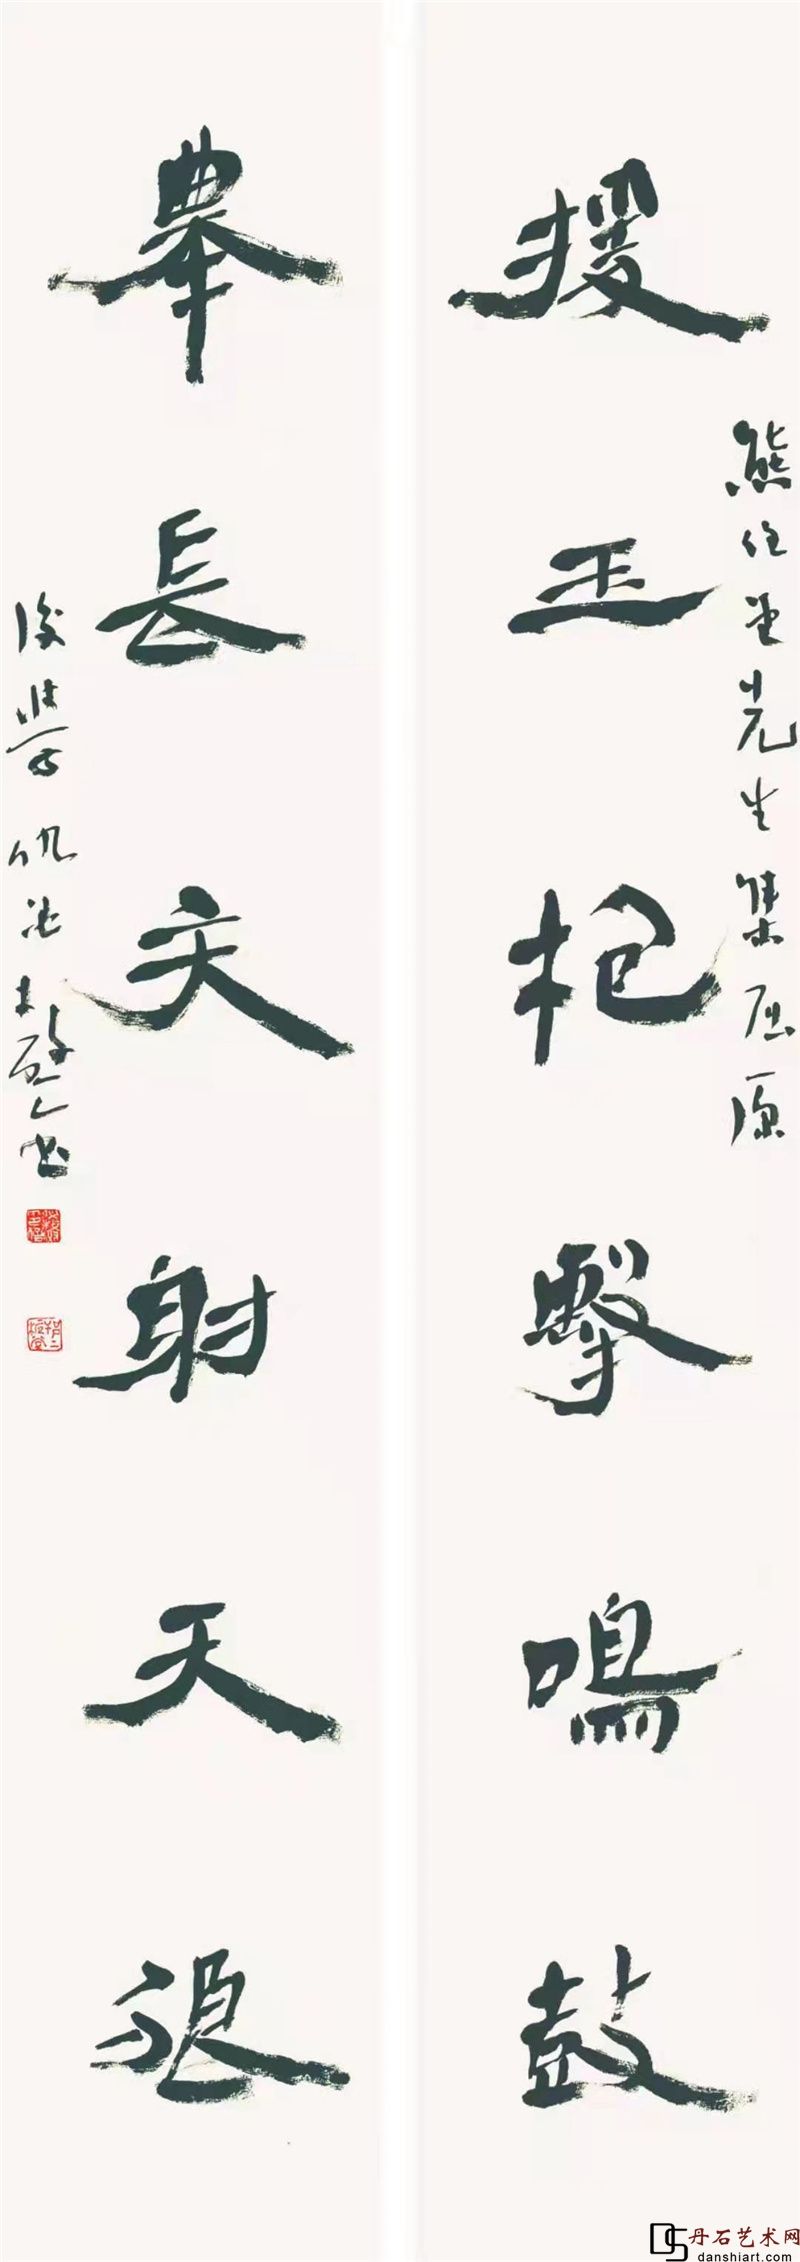 援玉枹擊鳴鼓
熊任望先生集屈原
舉長矢射天狼
後學
丹石艺术网
danshiart.com